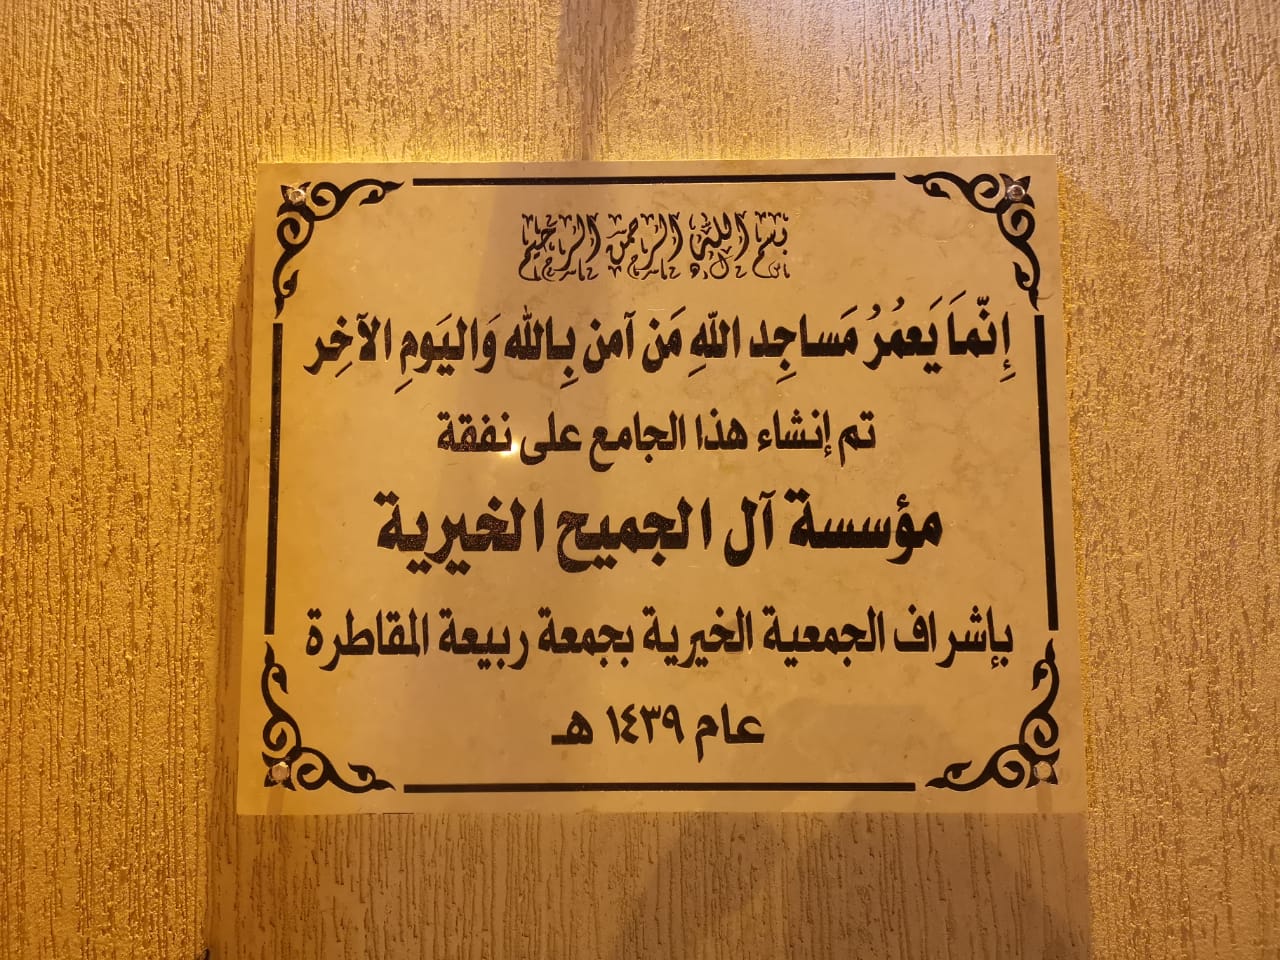 بسم الله الرحمن الرحيم
إِنّمَا يَعمُرُ مَساجِد اللّهِ مَن آمن بِالله وَاليَومِ الآخِر
تم إنشاء هذا الجامع على نفقة
مؤسسة آل الجميح الخيرية
بإشراف الجمعية الخيرية بجمعة ربيعة المقاطرة
عام ١٤٣٩ هـ